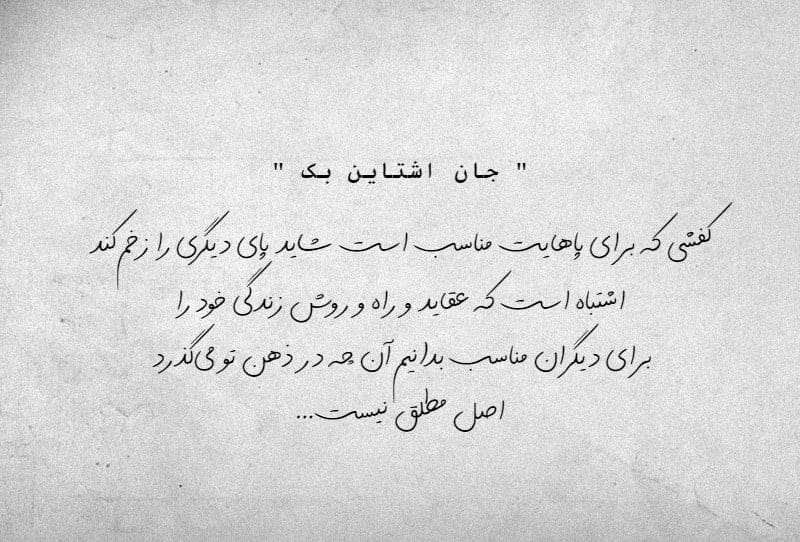 " جان اشتاین بک "
کفشی که برای پاهایت مناسب است شاید پای دیگری را زخم کند
اشتباه است که عقاید و راه و روش زندگی خود را
برای دیگران مناسب بدانیم آن چه در ذهن تو می‌گذرد
اصل مطلق نیست...